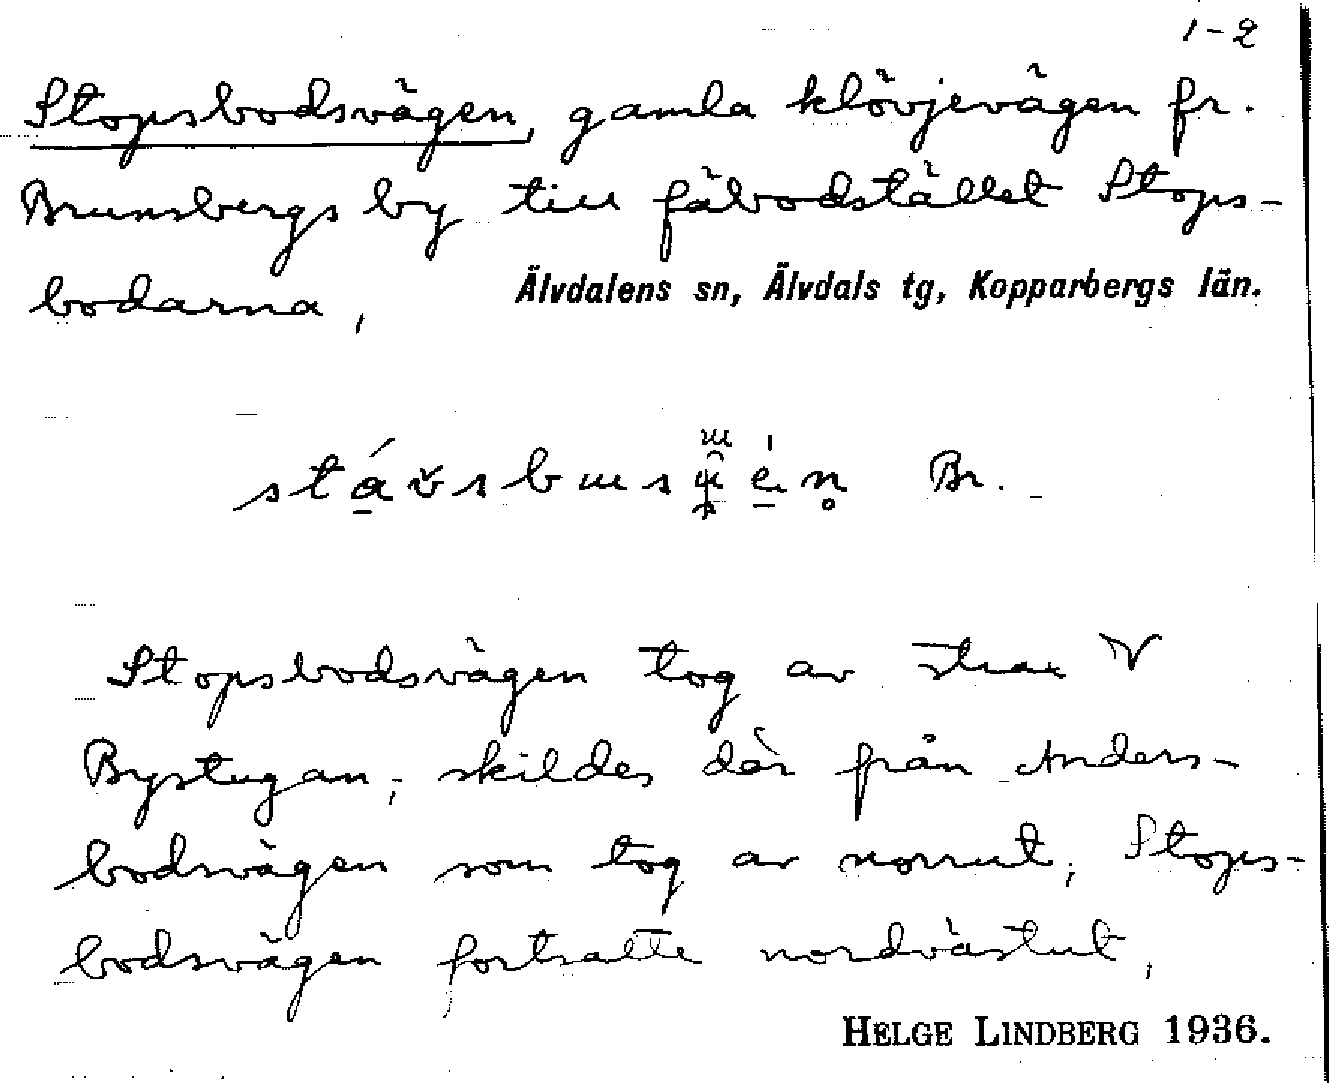 1-2
Stopsbodsvägen, gamla klövjevägen fr.
Brunsbergs by till fäbodstället Stops-
bodarna,
Älvdalens sn, Älvdals tg, Kopparbergs län.
Br.
Stopsbodsvägen tog av strax V
Bystugan, skildes där från Anders-
bodsvägen som tog av norrut, Stops-
bodsvägen fortsatte nordvästut,
HELGE LINDBERG 1936.